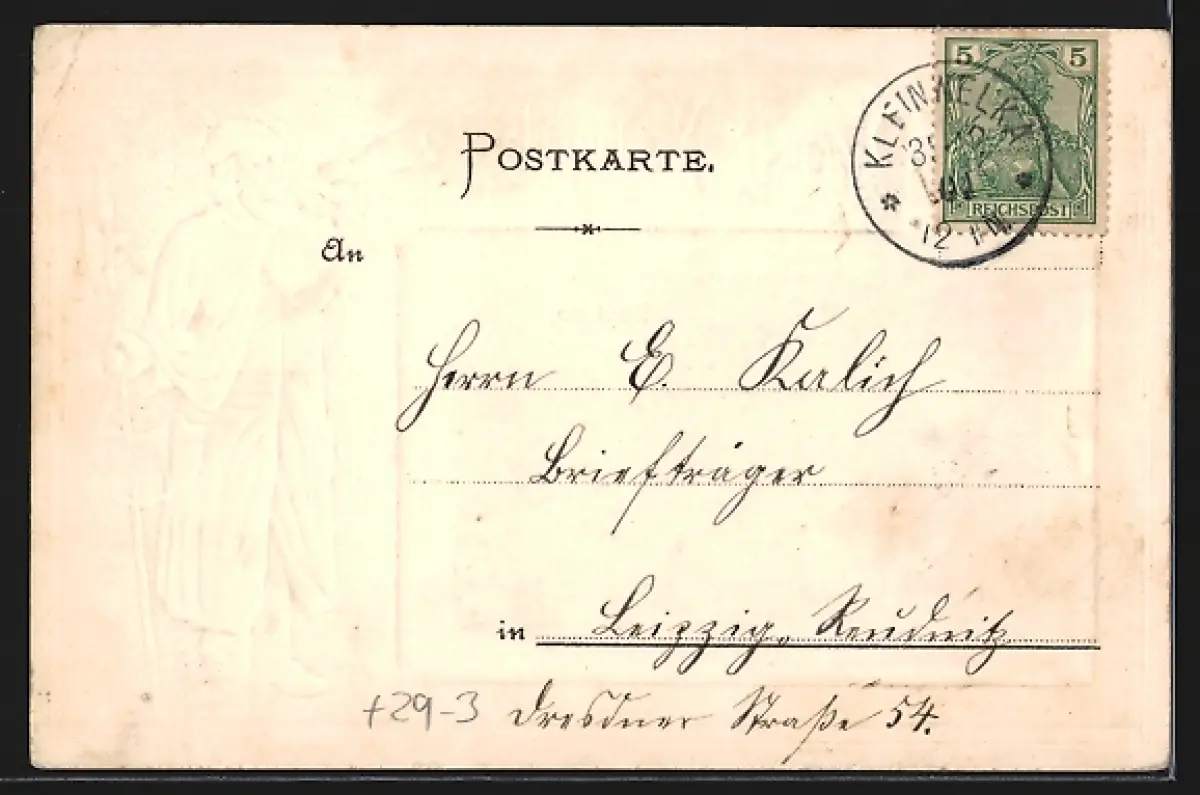 POSTKARTE.
5 5
REICHSPOST
KLEINWELKA
12 1N.
An
Herrn E. Kalich
Briefträger
in Leipzig, Reudnitz
+29-3 Dresdner Straße 54.